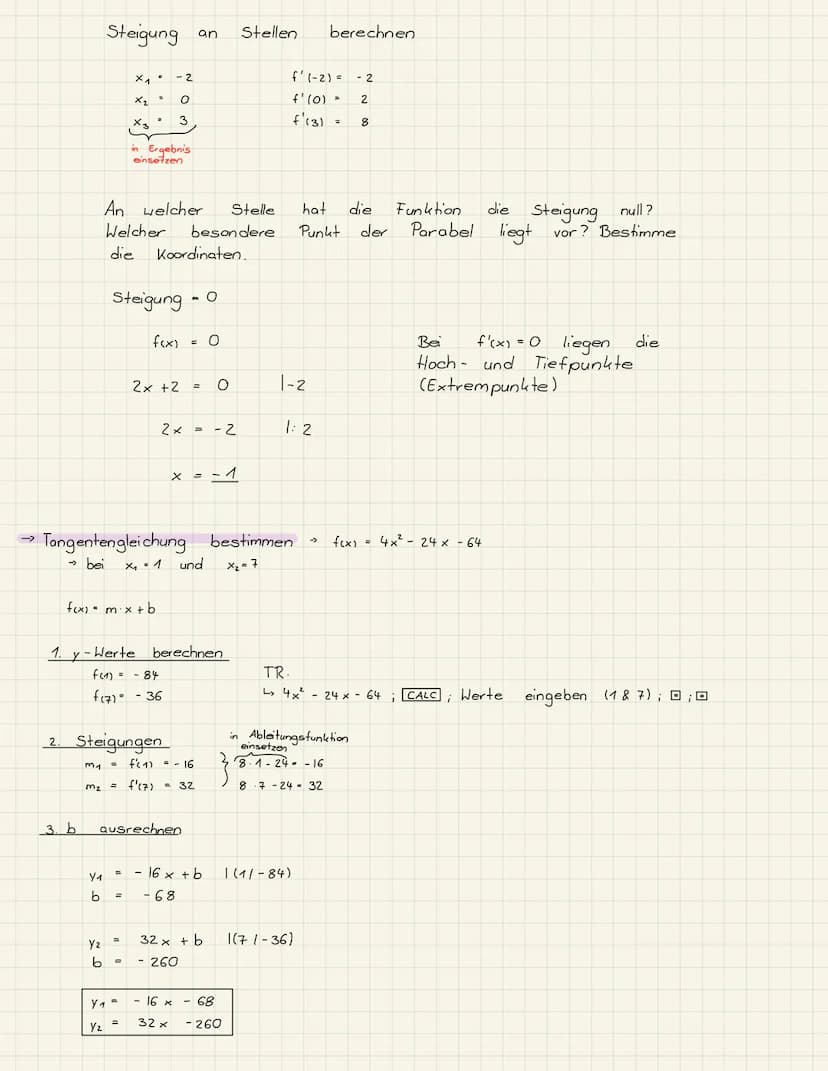 Steigung an Stellen berechnen
x₁ = -2 f'(-2) = -2
x₂ = 0 f'(0) = 2
x₃ = 3 f'(3) = 8
in Ergebnis
einsetzen
An welcher Stelle hat die Funktion die Steigung null?
Welcher besondere Punkt der Parabel liegt vor? Bestimme
die Koordinaten.
Steigung = 0
f(x) = 0
2x +2 = 0 |-2
2x = -2 |: 2
x = -1
Bei f'(x) = 0 liegen die
Hoch- und Tiefpunkte
(Extrempunkte)
→ Tangentengleichung bestimmen → f(x) = 4x² - 24x - 64
→ bei x₁ = 1 und x₂ = 7
f(x) = m·x + b
1. y-Werte berechnen
f(1) = - 84
f(7) = - 36
TR.
↳ 4x² - 24x - 64 ; CALC ; Werte eingeben (1 & 7) ; ⊡ ; ⊡
2. Steigungen
m₁ = f'(1) = - 16
m₂ = f'(7) = 32
in Ableitungsfunktion
einsetzen
8·1 - 24 = -16
8·7 - 24 = 32
3. b ausrechnen
y₁ = - 16x + b |(1/-84)
b = - 68
y₂ = 32x + b |(7/-36)
b = - 260
y₁ = - 16x - 68
y₂ = 32x - 260